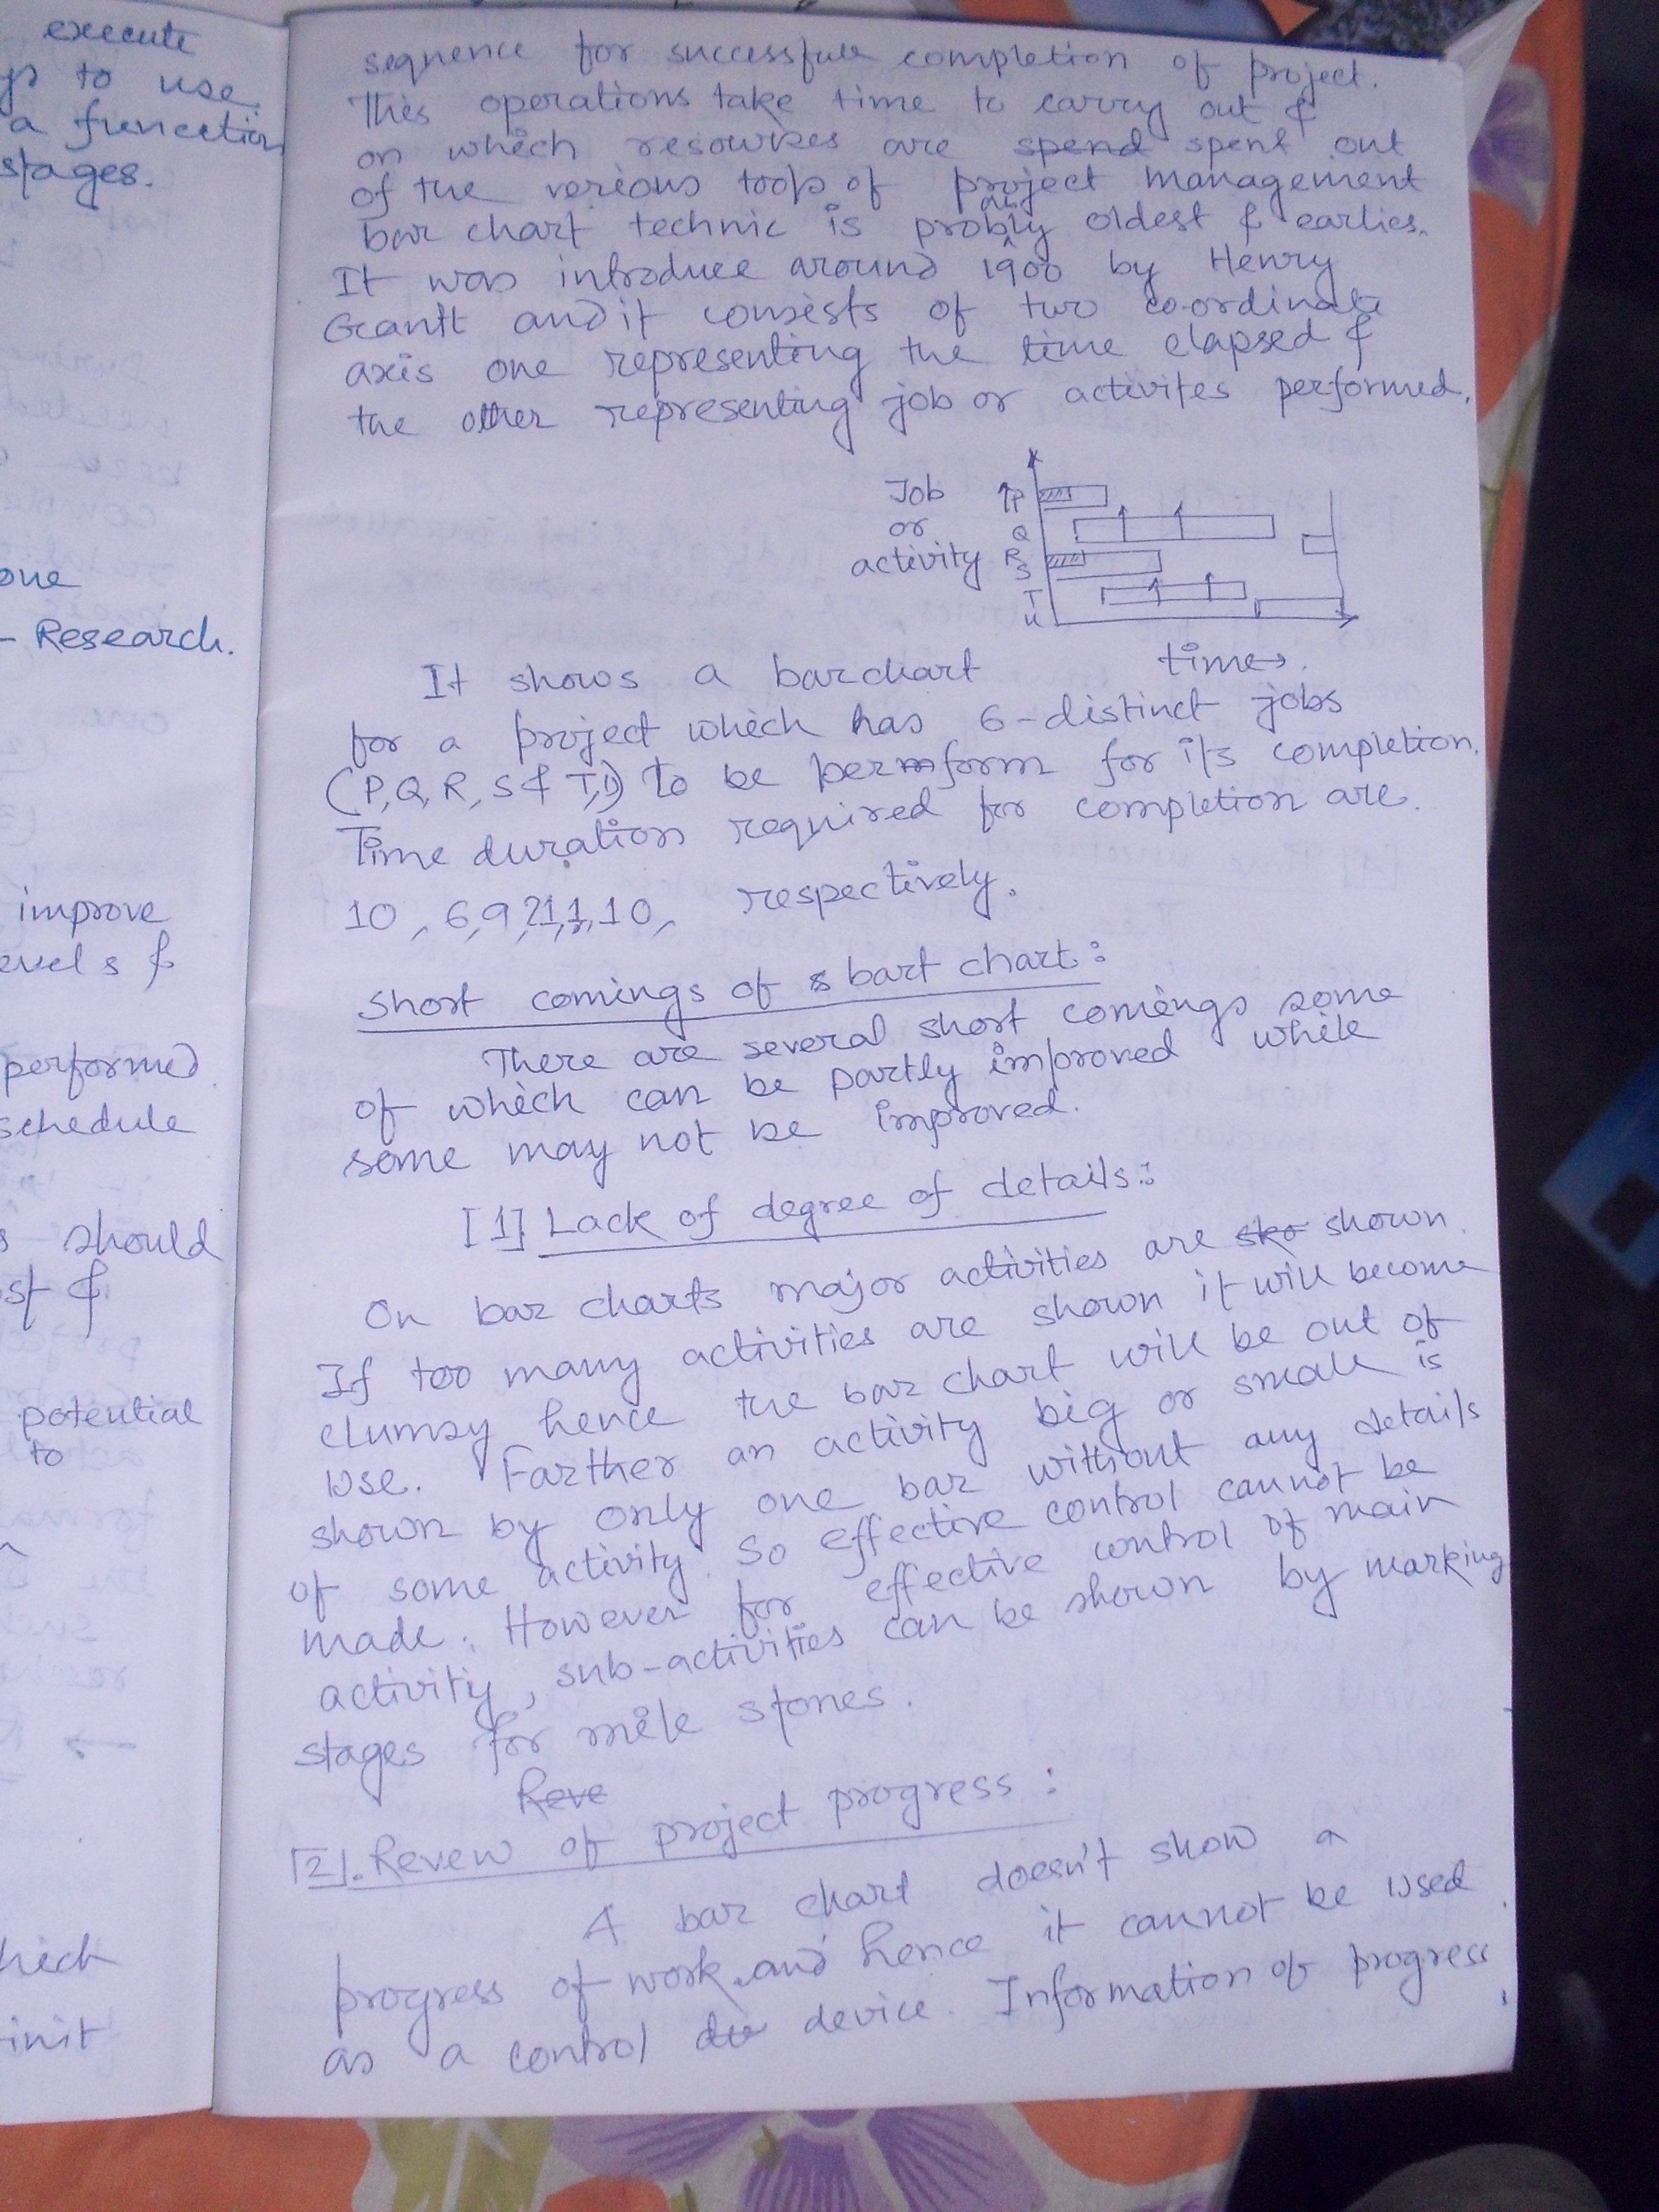 execute
to use
a function
stages.
one
- Research.
improve
performed
schedule
should
st &
potential
to
sequence for successfull completion of project.
This operations take time to carry out &
on which resources are spend spent out
of the verious tools of project management
bar chart technic is probably oldest & earlies.
It was introduce around 1900 by Henry
Gantt and it consists of two co-ordinate
axis one representing the time elapsed &
the other representing job or activites performed.
Job
or
activity
P
Q
R
S
T
U
time→.
It shows a barchart
for a project which has 6-distinct jobs
(P, Q, R, S & T, U) to be permform for it's completion.
Time duration required for completion are.
10, 6, 9, 10, respectively.
Short comings of bart chart:
There are several short comings some
of which can be partly improved while
some may not be improved.
[1] Lack of degree of details:
On bar charts major activities are sho shown.
If too many activities are shown it will become
clumsy hence the bar chart will be out of
use. Farther an activity big or small is
shown by only one bar without any details
of some activity. So effective control cannot be
made. However for effective control of main
activity, sub-activities can be shown by marking
stages for mile stones.
Reve
[2]. Revew of project progress:
A bar chart doesn't show a
progress of work and hence it cannot be used
as a control de device. Information of progress